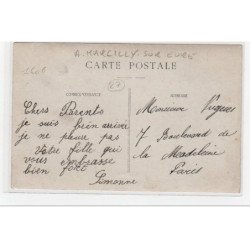 A. MARCILLY. SUR EURE
CARTE POSTALE
27
CORRESPONDANCE
ADRESSE
Chers Parents
je suis bien arrivé
je ne pleure pas
Votre fille qui
vous embrasse
bien fort
Simonne
Monsieur
7 Boulevard de
la Madeleine
Paris